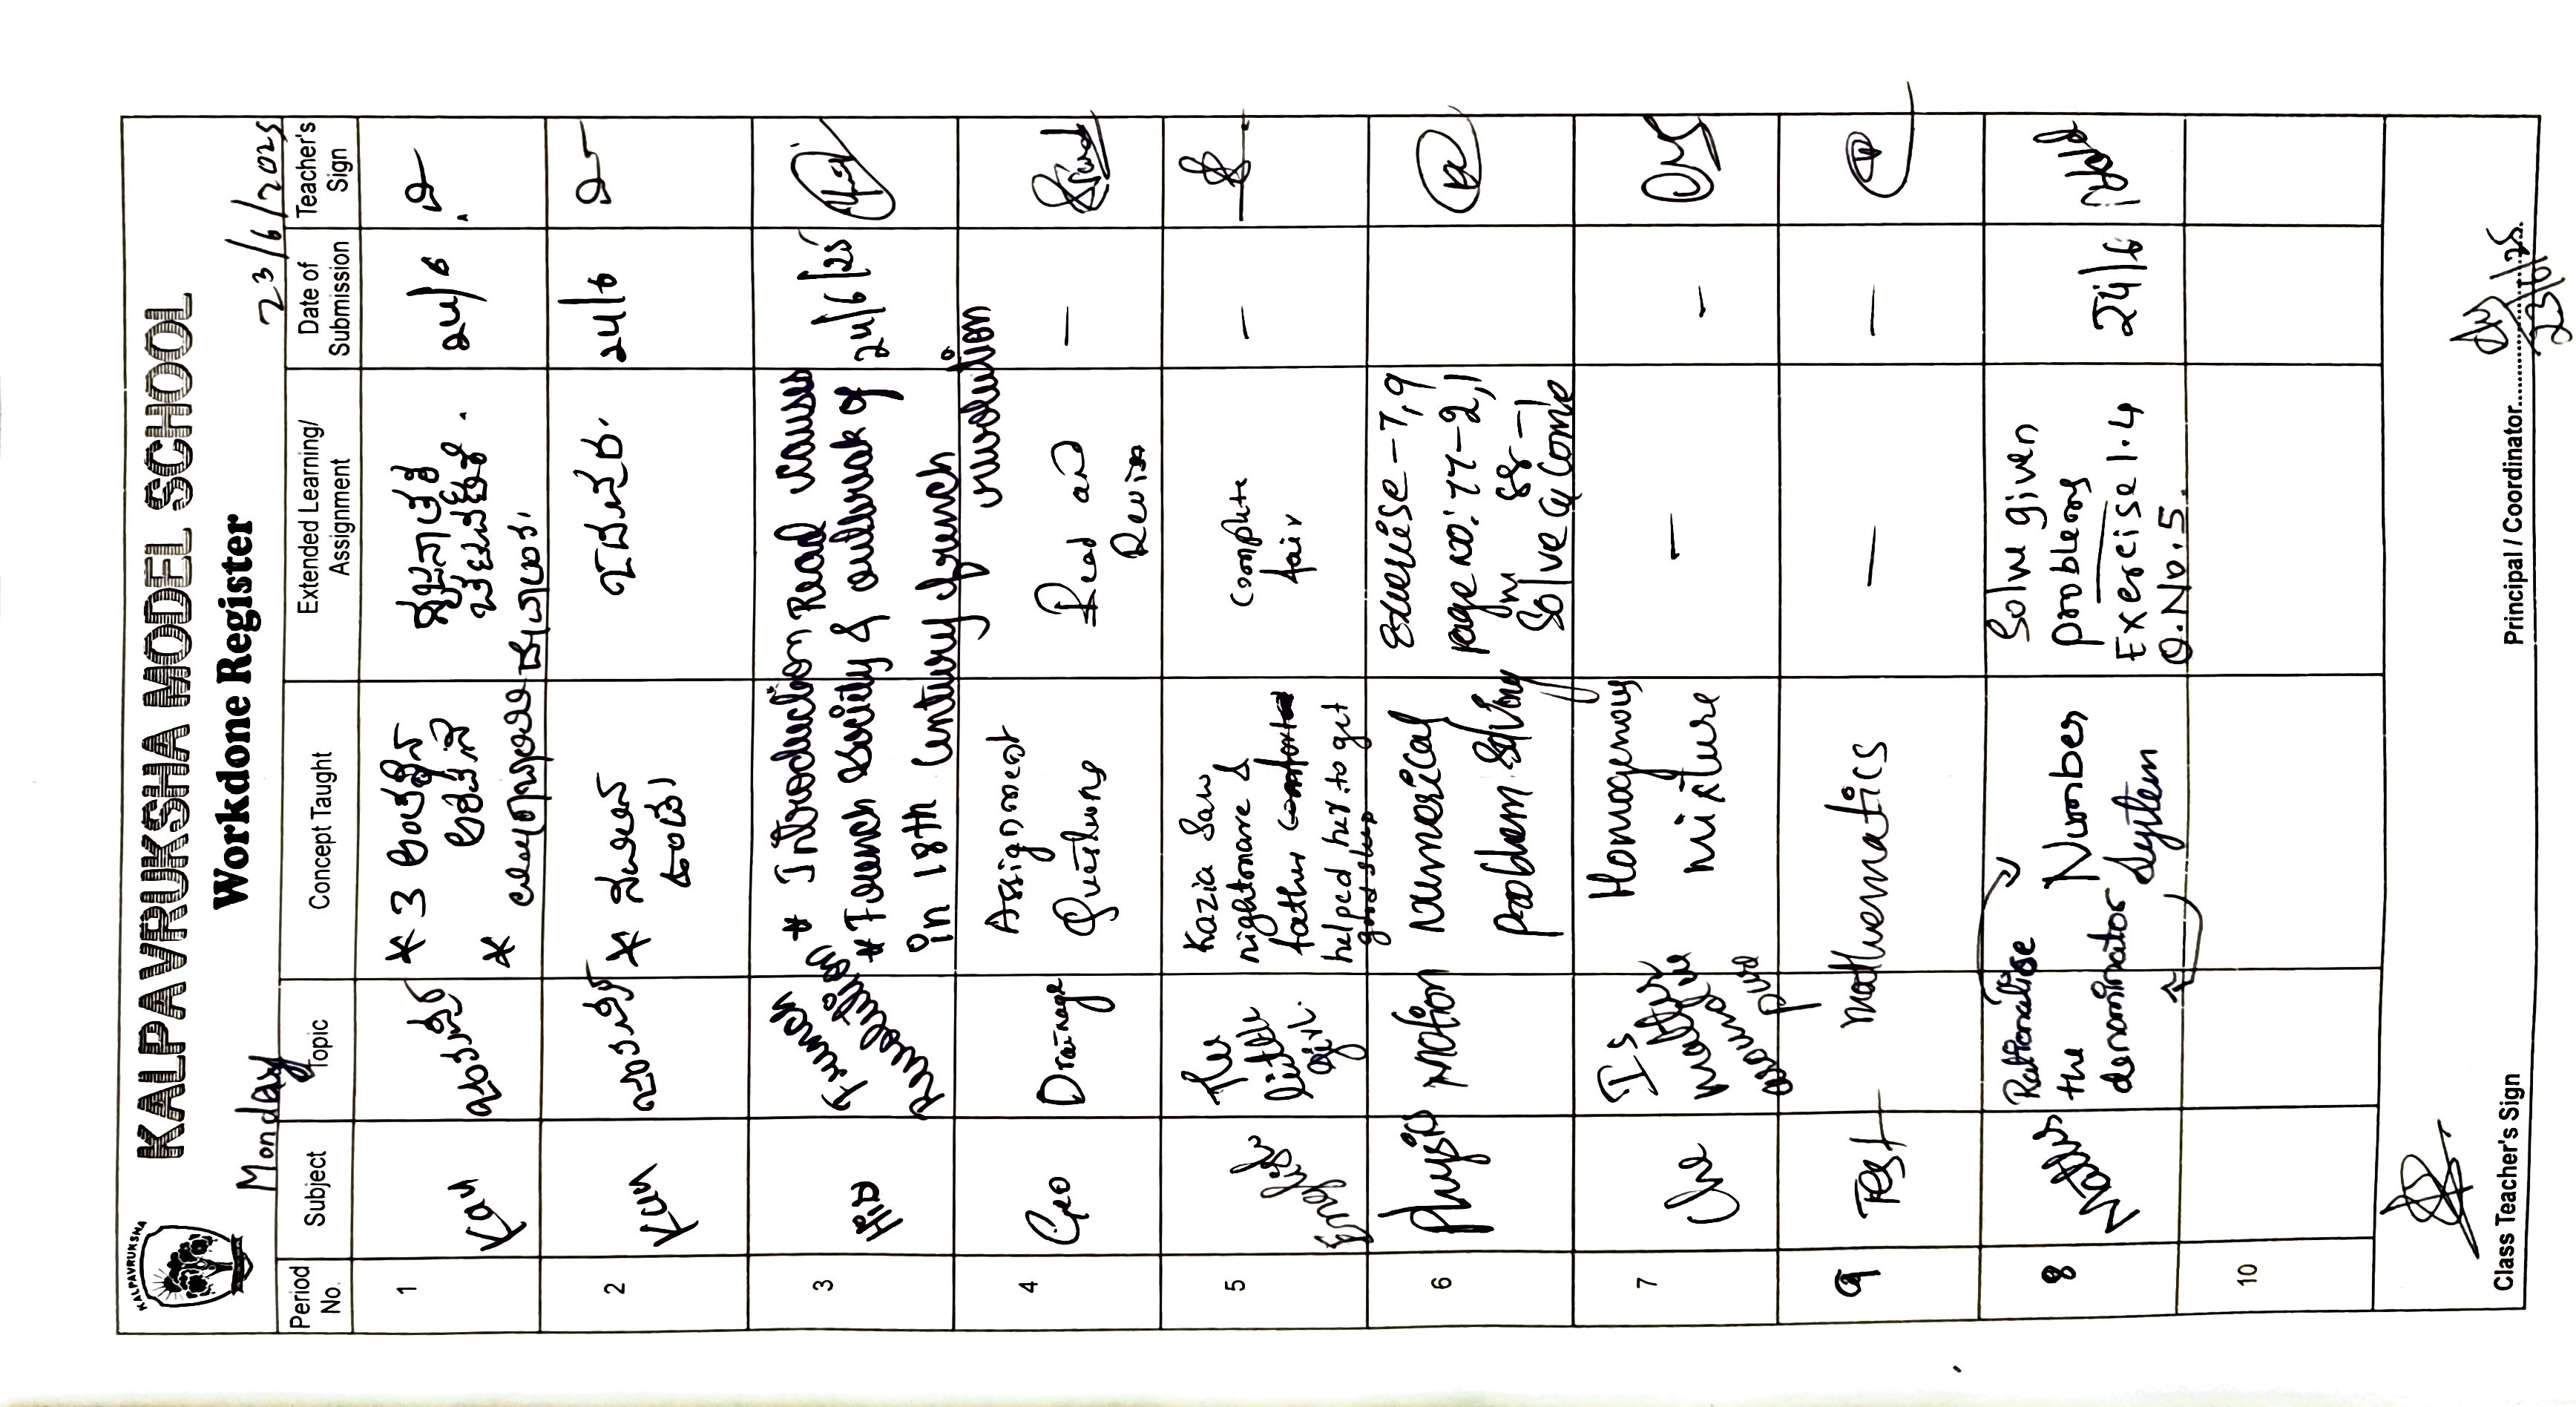 KALPAVRUKSHA
KALPAVRUKSHA MODEL SCHOOL
Workdone Register
Monday
23/6/2025
Period No.
Subject
Topic
Concept Taught
Extended Learning/ Assignment
Date of Submission
Teacher's Sign
1
Kan
* 3
*
24/6
2
Kan
*
24/6
3
His
French
Revolution
* Introduction
* French society
in 18th Century
Read causes
& outbreak of
french
revolution
24/6/25
4
Geo
Drainage
Assignment
Questions
Read and
Revise
—
5
English
The
little
girl.
Kazia Saw
nightmare &
father
helped her to get
good sleep
complete
fair
—
6
Physics
motion
numerical
problem solving
Exercise-7,9
page no: 77-2,1
Solve
7
Che
Is
matter
around
pure
Homogenous
mixture
—
—
9
Test
Mathematics
—
—
8
Maths
Rationalise
the
denominator
Number
System
Solve given
problems
Exercise 1.4
Q.No.5.
24/6
10
Class Teacher's Sign
Principal / Coordinator
23/6/25